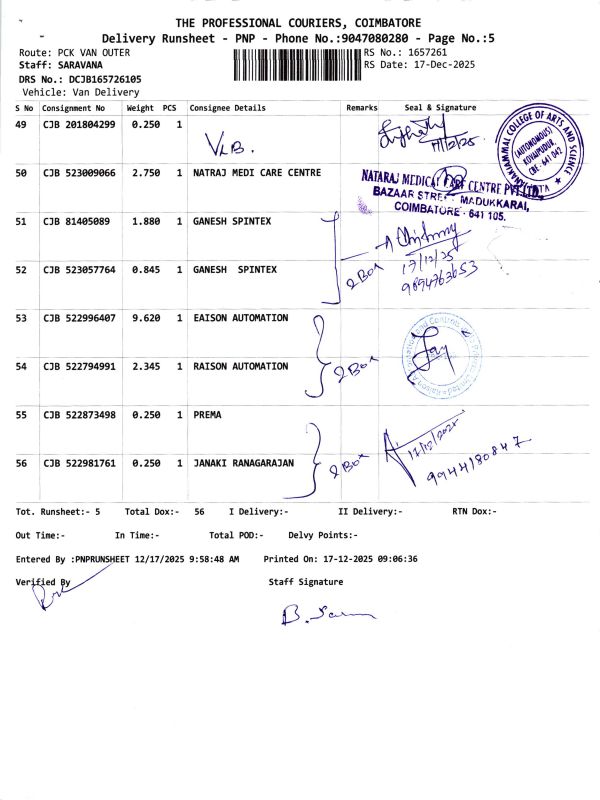 THE PROFESSIONAL COURIERS, COIMBATORE
Delivery Runsheet - PNP - Phone No.:9047080280 - Page No.:5
Route: PCK VAN OUTER
RS No.: 1657261
Staff: SARAVANA
RS Date: 17-Dec-2025
DRS No.: DCJB165726105
Vehicle: Van Delivery
S No Consignment No Weight PCS Consignee Details Remarks Seal & Signature
49 CJB 201804299 0.250 1 VLB. 17/12/25
COLLEGE OF ARTS AND SCIENCE
(AUTONOMOUS)
KOVAIPUDUR,
CBE - 641 042
50 CJB 523009066 2.750 1 NATRAJ MEDI CARE CENTRE
NATARAJ MEDICAL CARE CENTRE PVT LTD.,
BAZAAR STREET, MADUKKARAI,
COIMBATORE - 641 105.
51 CJB 81405089 1.880 1 GANESH SPINTEX
52 CJB 523057764 0.845 1 GANESH SPINTEX
2 Box
17/12/25
9894763653
53 CJB 522996407 9.620 1 EAISON AUTOMATION
54 CJB 522794991 2.345 1 RAISON AUTOMATION
2 Box
Raison Automation and Controls Private Limited
55 CJB 522873498 0.250 1 PREMA
56 CJB 522981761 0.250 1 JANAKI RANAGARAJAN
2 Box
17/12/2025
9944180847
Tot. Runsheet:- 5 Total Dox:- 56 I Delivery:- II Delivery:- RTN Dox:-
Out Time:- In Time:- Total POD:- Delvy Points:-
Entered By :PNPRUNSHEET 12/17/2025 9:58:48 AM Printed On: 17-12-2025 09:06:36
Verified By Staff Signature